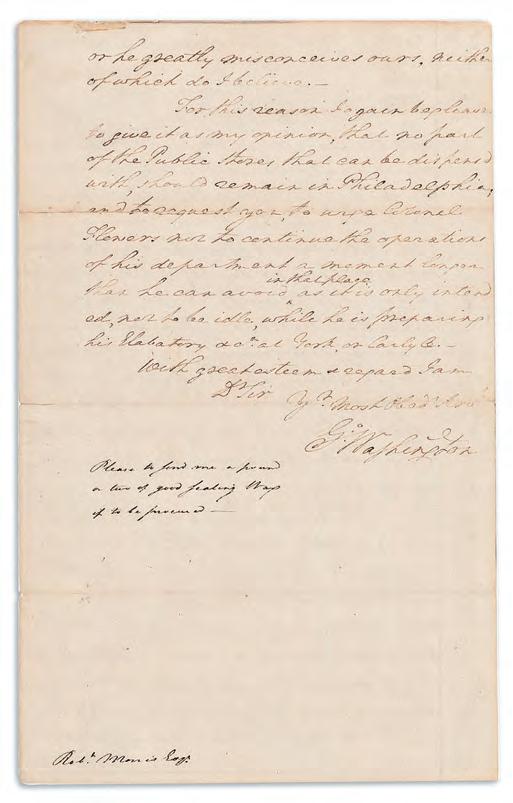 or he greatly misconceives ours, neither
of which do I believe.—
For this reason I again beg leave
to give it as my opinion, that no part
of the Public Stores that can be dispens'd
with, should remain in Philadelphia,
and to request you, to urge Colonel
Flowers not to continue the operations
of his department a moment longer
in that place
than he can avoid ^ as it is only intend
ed, not to be idle, while he is preparing
his Elabatory &c.a at York, or Carlyle.—
With great esteem & regard I am
Dr Sir Yr Most Obedt Servt
Go: Washington
Please to send me a pound
or two of good sealing Wax
if to be procured—
Robt. Morris Esqr.